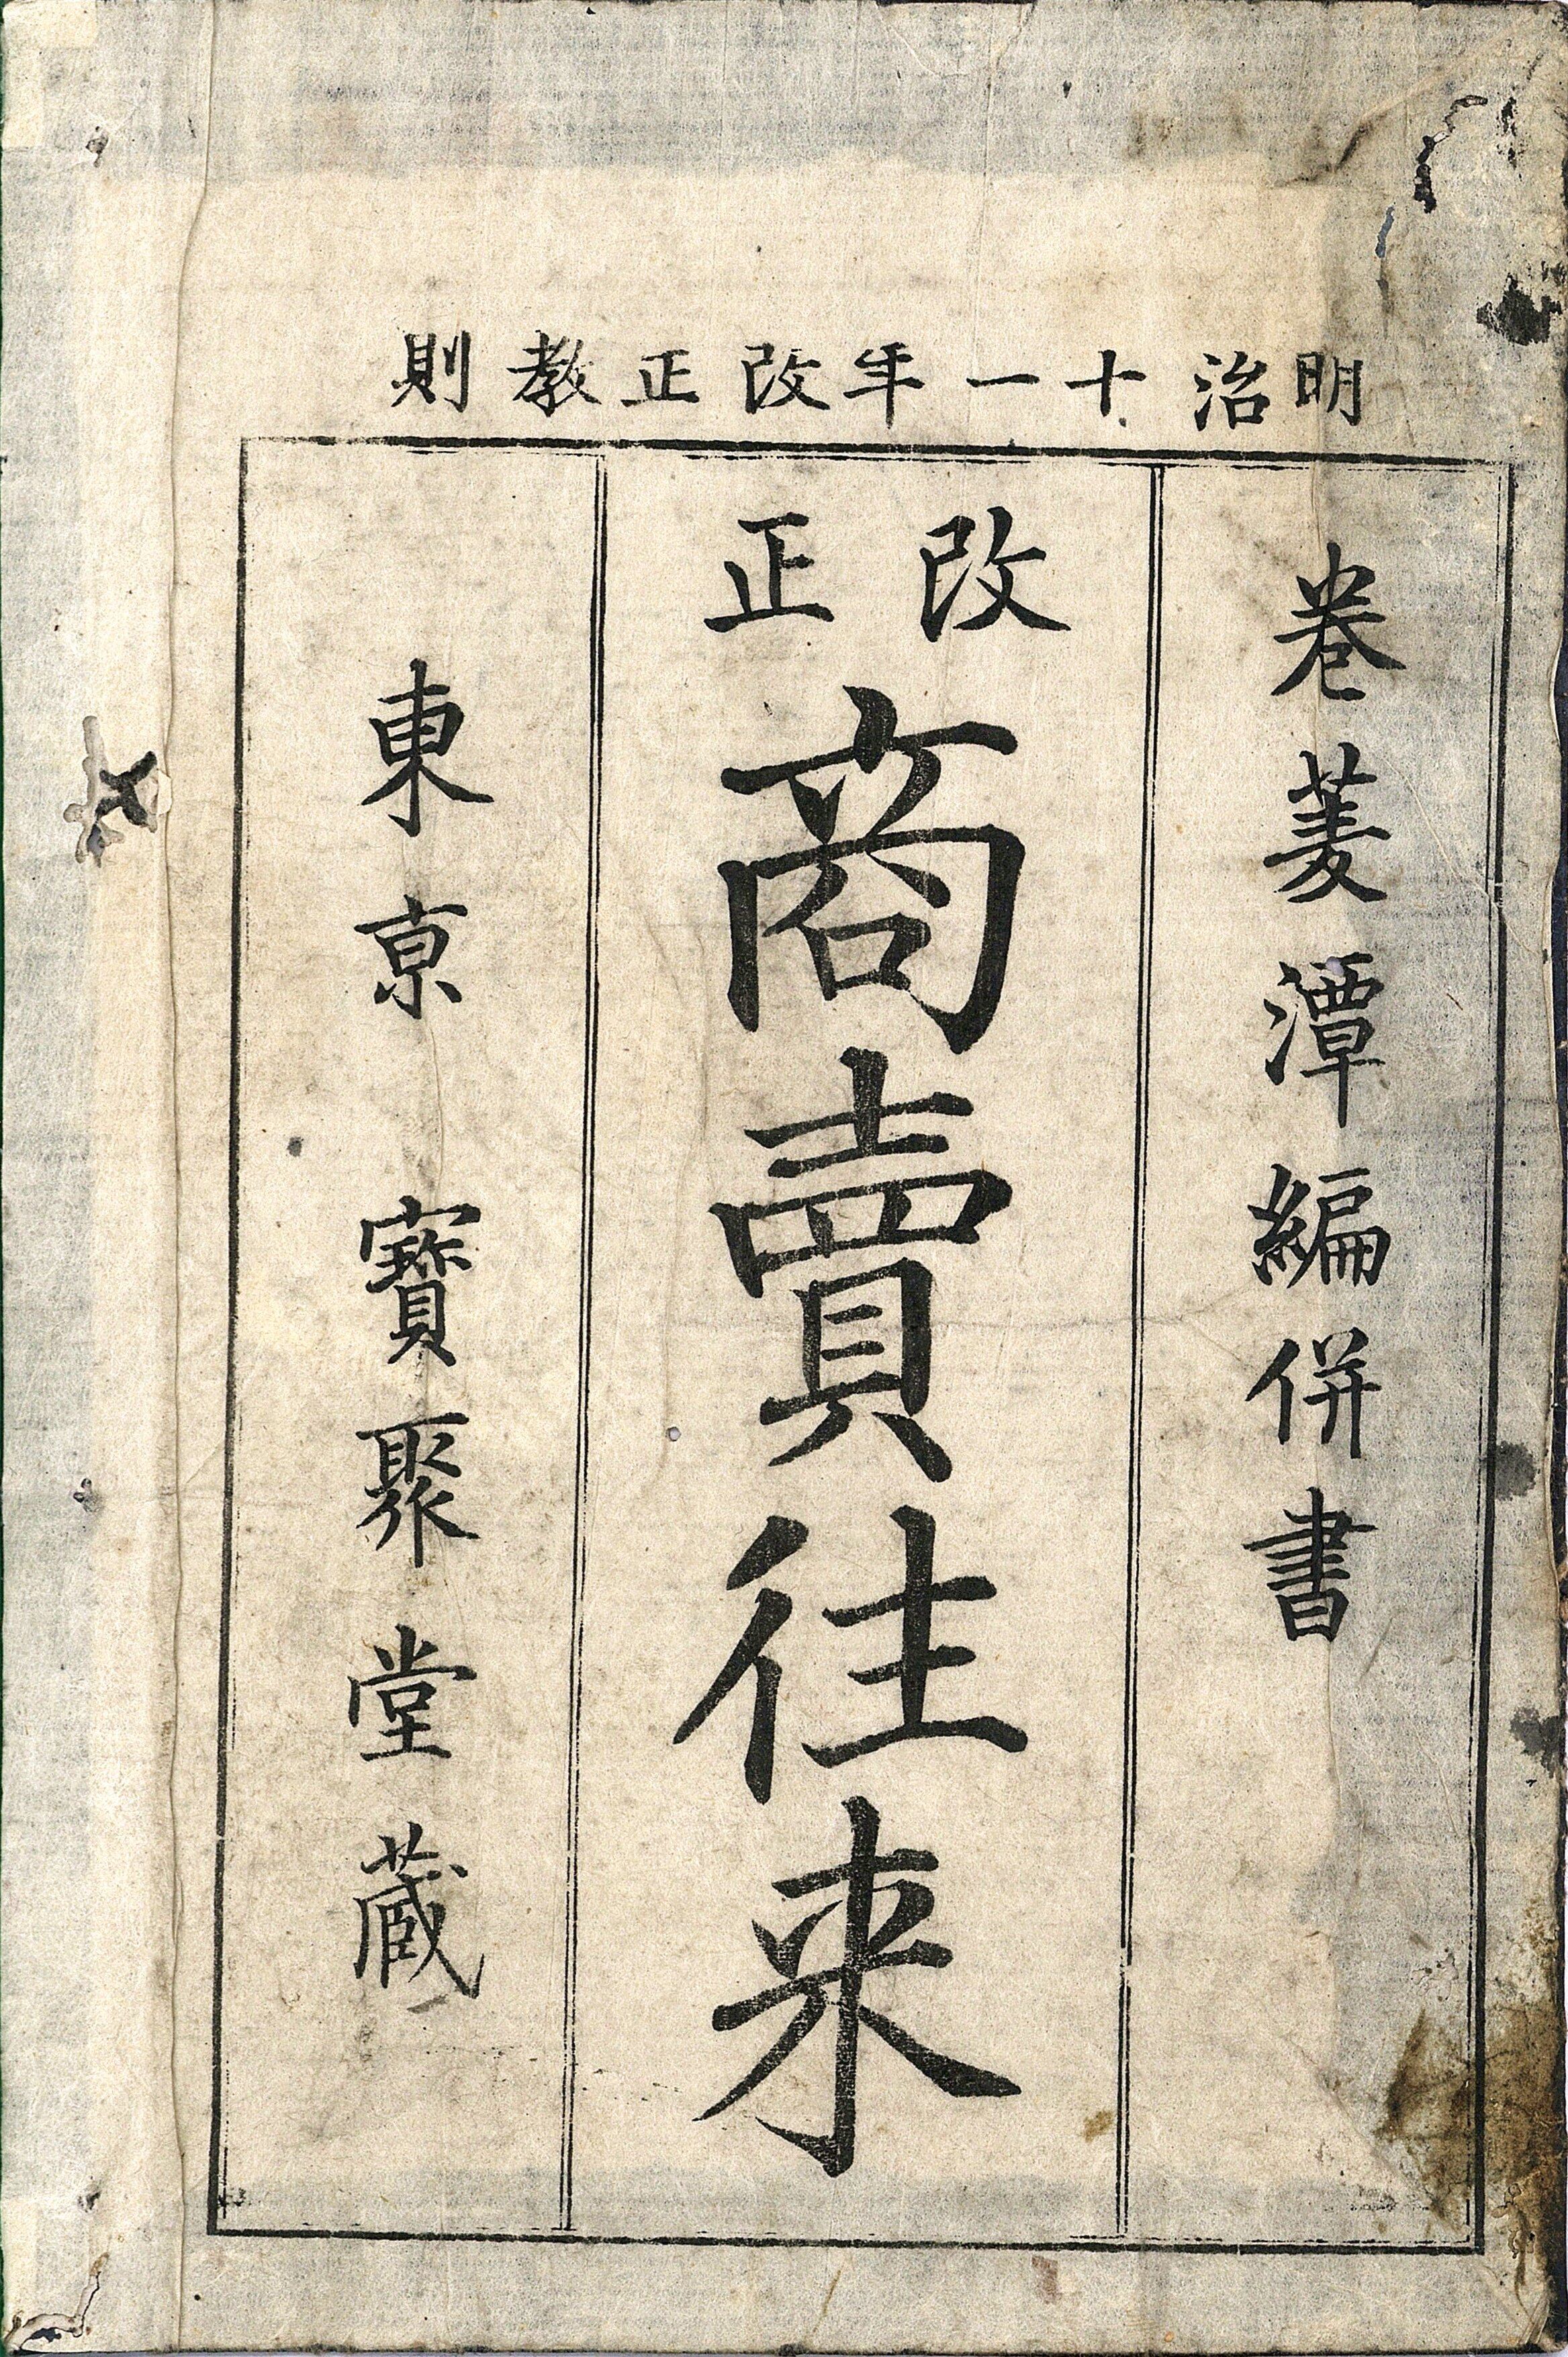 明治十一年改正教則
巻菱潭編併書
改正
商賣往来
東京 寳聚堂蔵